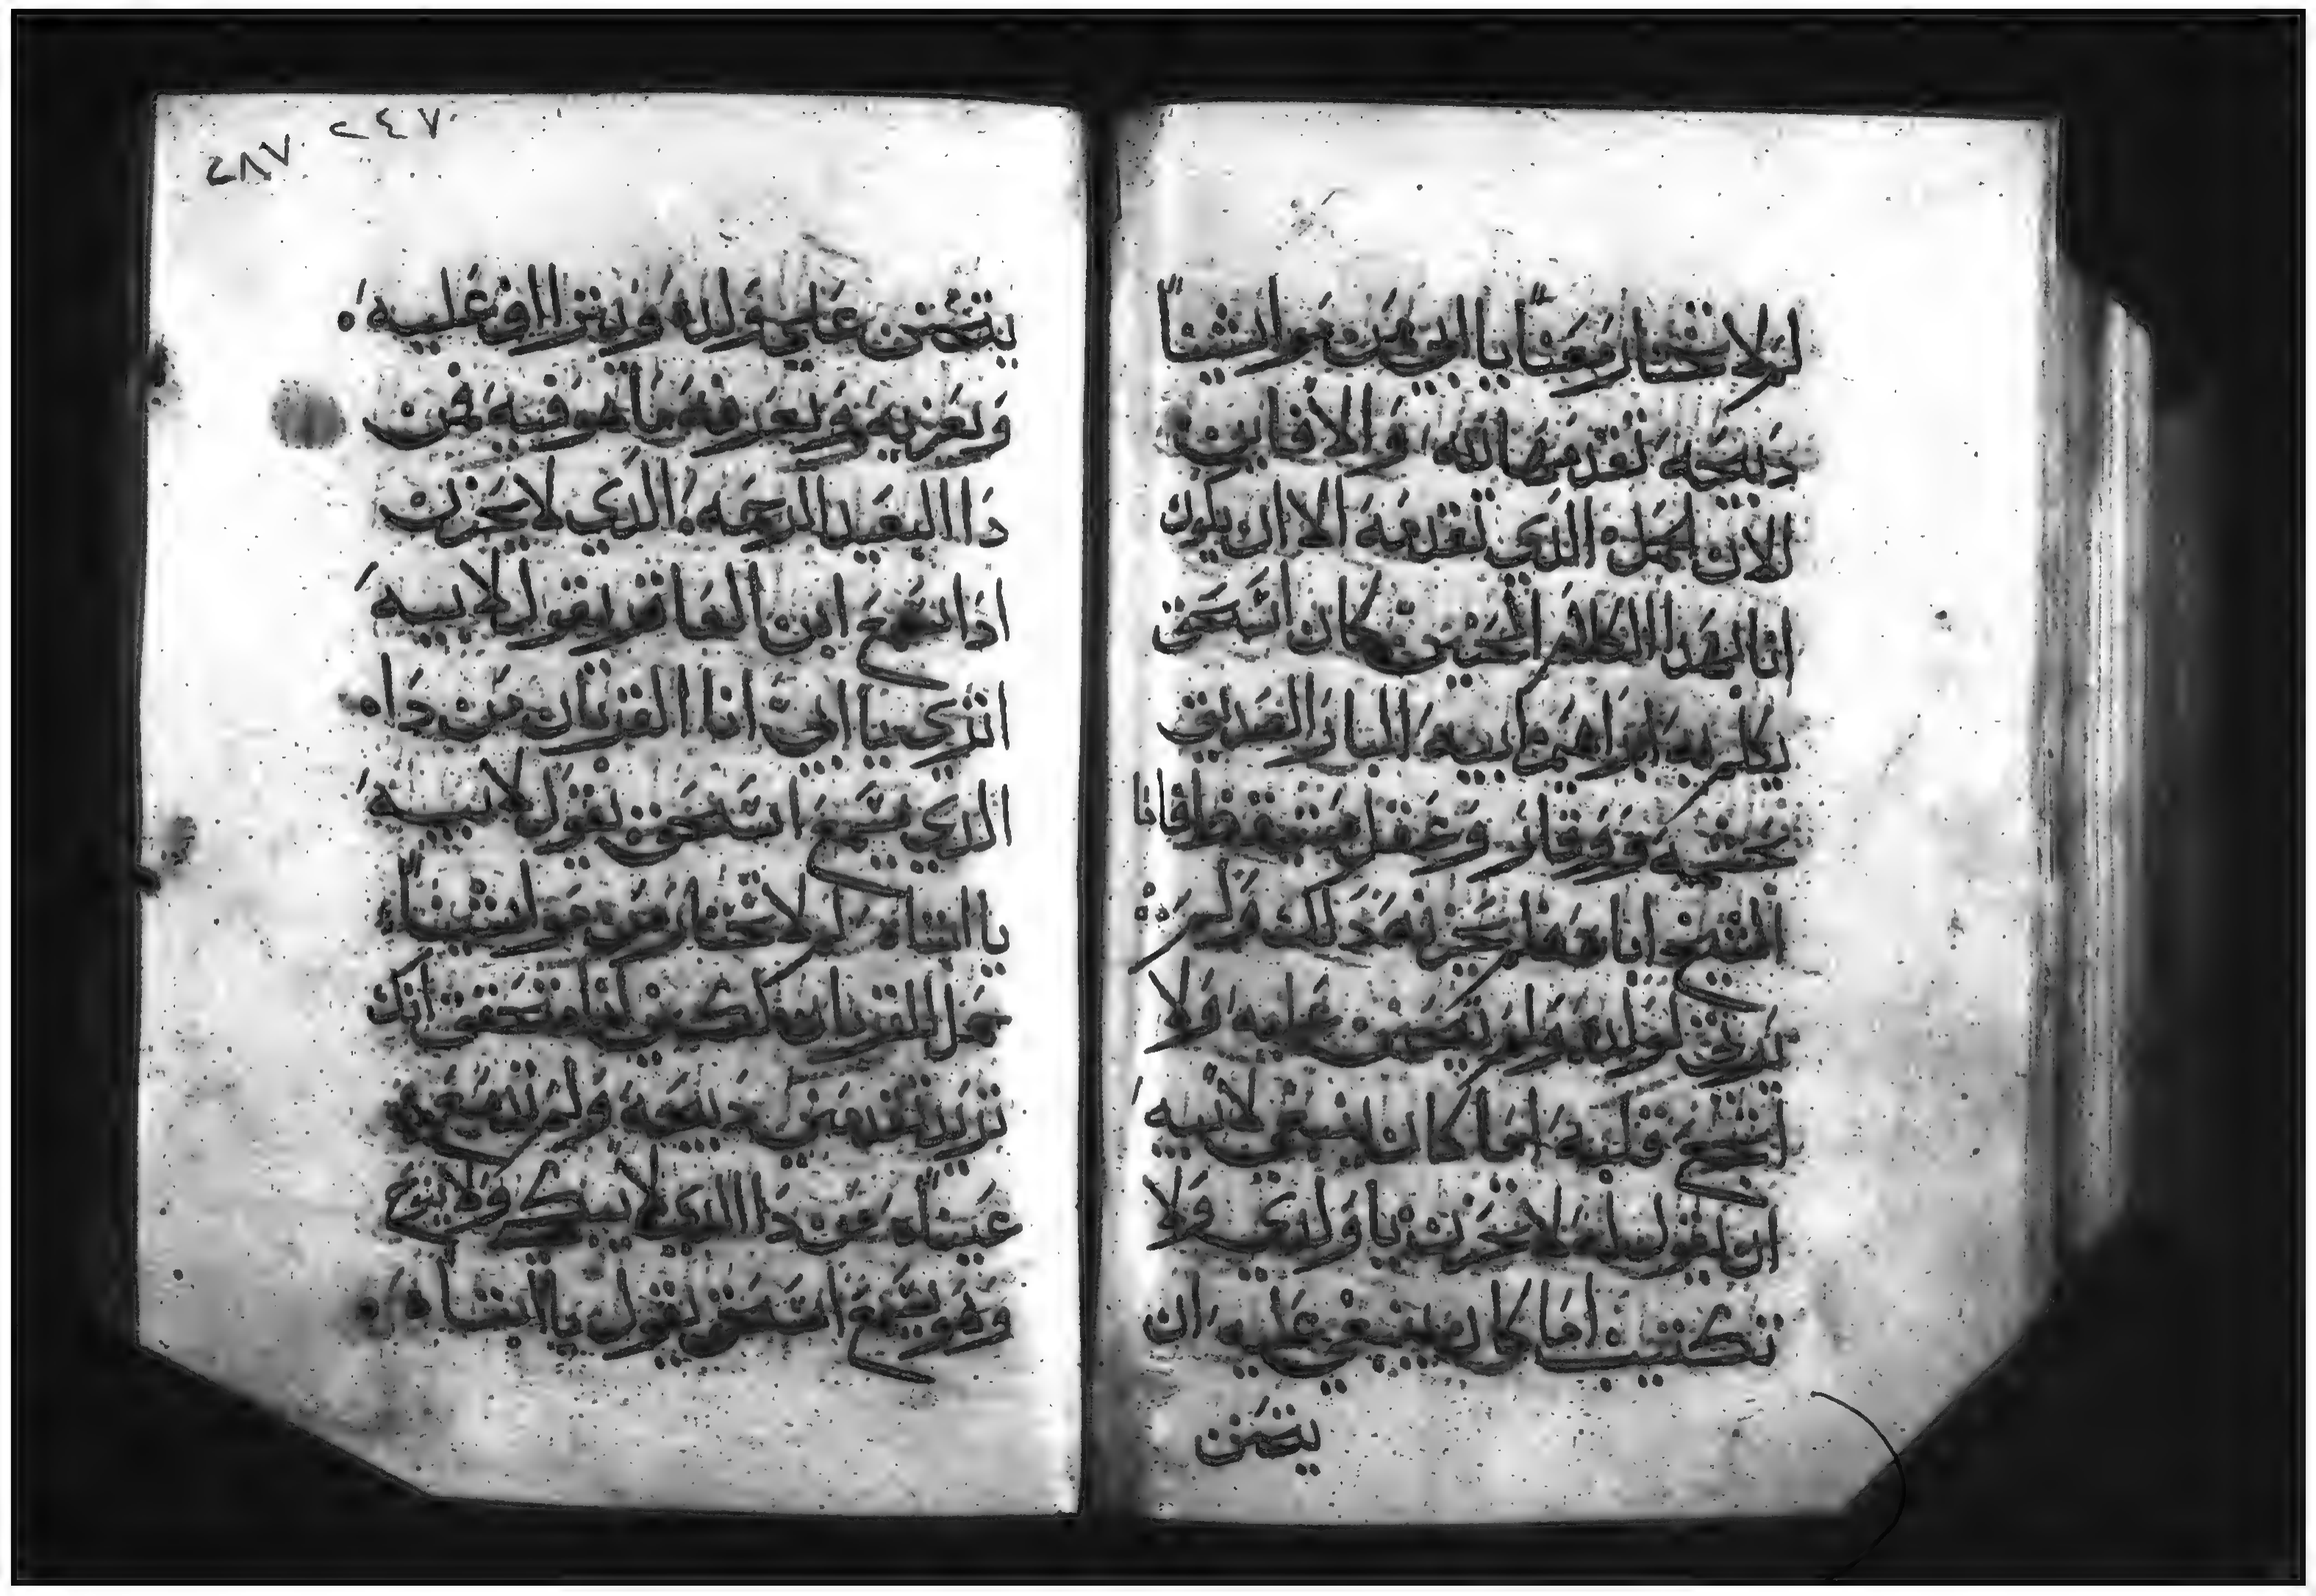 لم لا تختار معنا يا ابي من مواشينا
دبيحة تقدمها لله والا فاين
الان الحمل الذي تقدمه الا ان يكون
انا لهدا الكلام الحنين كان اسحق
يكلم به ابراهيم ابيه البار الصديق
بحشيه ووقار وعقل فاما
الشيخ انا فلم يحزنه ذلك ولم
يرق لولده ولم يتحنن عليه ولا
انتجع قلبه اما كان ينبغي لابيه
ان يقول له لا تحزن يا ولدي ولا
تكتيب اما كان ينبغي عليه ان
يتحنن
٢٤٧
٢٨٧
يتحنن على ولده ويتراف عليه
ويعزيه ويعرفه ما هو فيه فمن
دا البعيد الرحمه الذي لا يحزن
ادا سمع ابن العاقر يقول لابيه
اترى يا ابي انا القربان من دا
الدي يسمع اسحق يقول لابيه
يا ابتاه لم لا تختار من مواشينا
حمل للقربان انك
تريد تقدمني دبيحة ولم تدمع
عيناه من دا الدي لا يبكي ولا ينوح
وهو يسمع اسحق يقول يا ابتاه